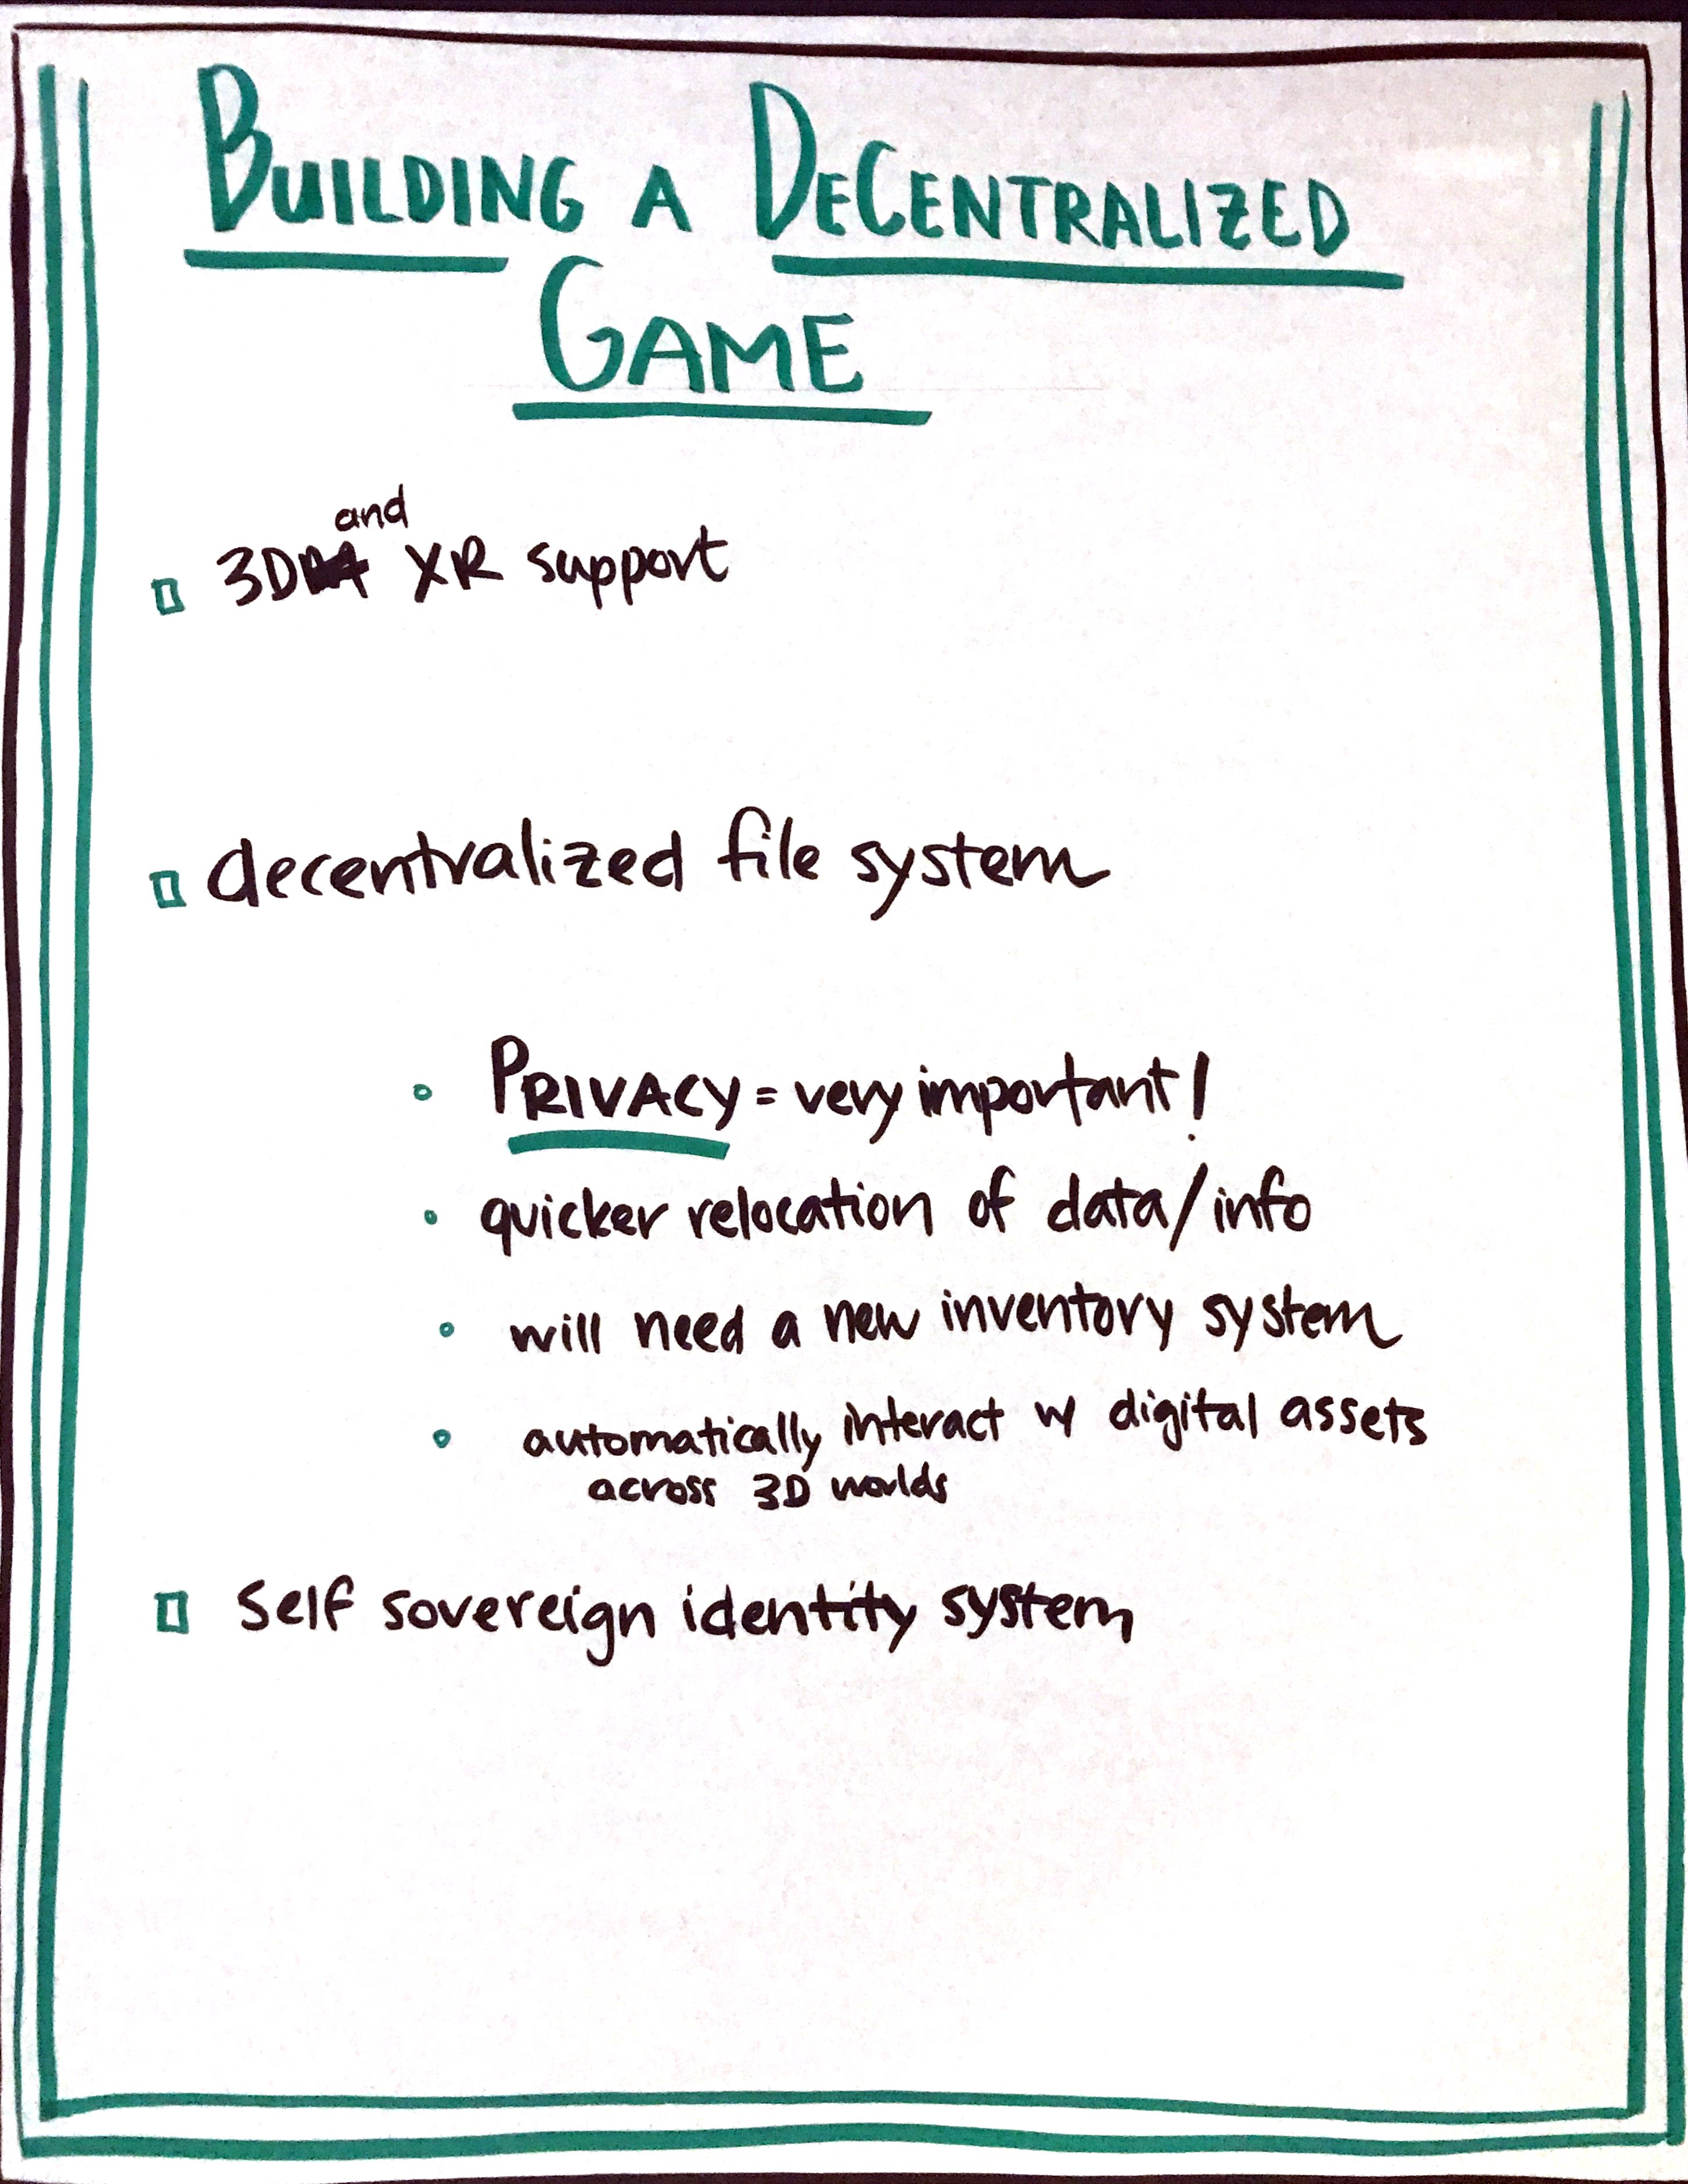 BUILDING A DECENTRALIZED
GAME
and
3D XR support
decentralized file system
PRIVACY = very important!
quicker relocation of data/info
will need a new inventory system
automatically interact w/ digital assets
across 3D worlds
self sovereign identity system